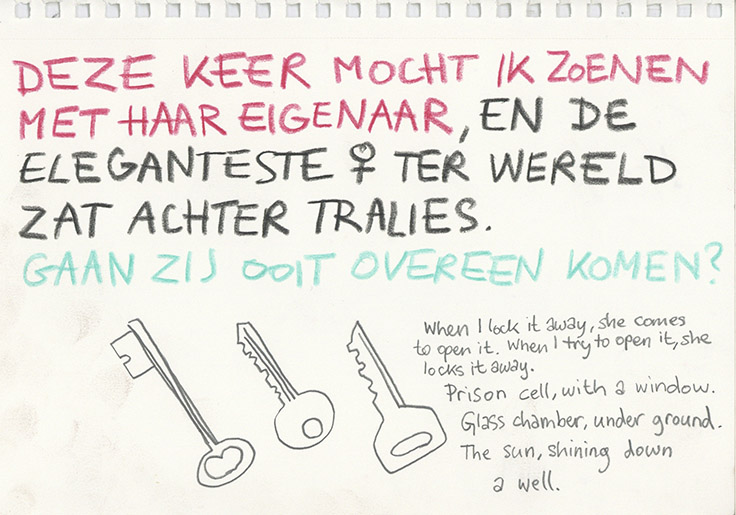 DEZE KEER MOCHT IK ZOENEN
MET HAAR EIGENAAR, EN DE
ELEGANTESTE ♀ TER WERELD
ZAT ACHTER TRALIES.
GAAN ZIJ OOIT OVEREEN KOMEN?
When I lock it away, she comes
to open it. When I try to open it, she
locks it away.
Prison cell, with a window.
Glass chamber, under ground.
The sun, shining down
a well.